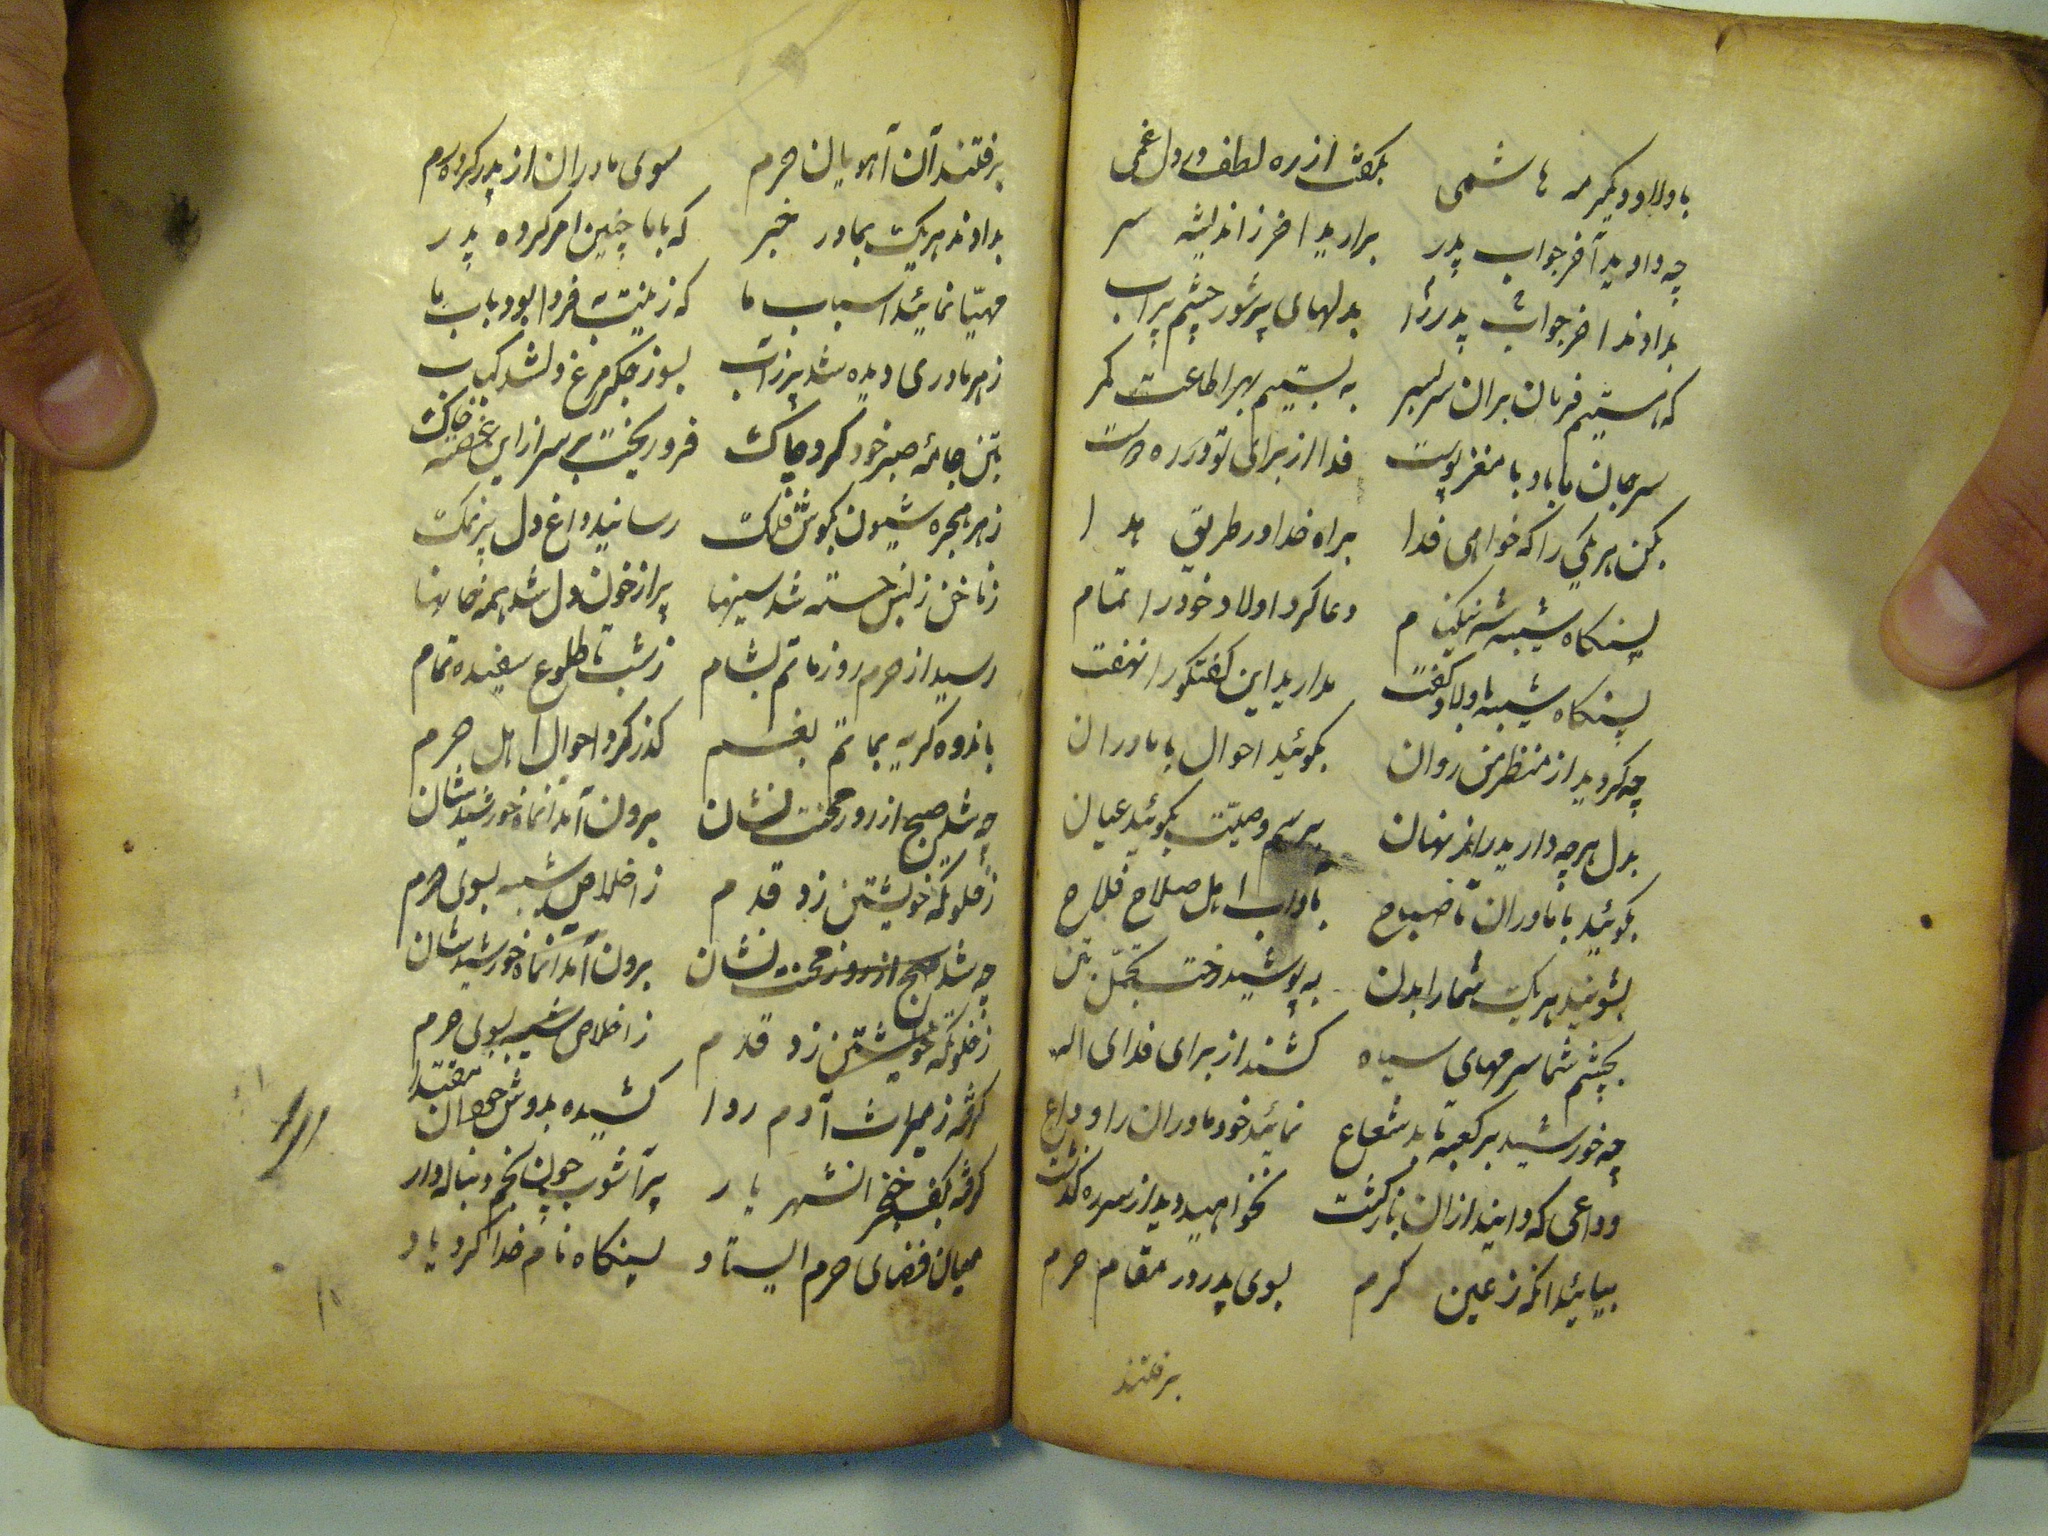 باولاد دیگر مه هاشمی بگفت از ره لطف و دل غمی
چه دادید آخر جواب پدر برارید اخر ز اندیشه سر
بدادند اخر جواب پدر را بدلهای پرشور چشم پراب
که هستیم فرمان بران سربسر به بستیم بهر اطاعت کمر
سر جان ما باد با مغز پوست فدا از برای تو در ره دوست
بکن هر یکی را که خواهی فدا براه خدا در طریق هدا
پسنکاه شیبه شه نیکنام دعا کرد اولاد خود را تمام
پسنکاه شیبه باولاد گفت مدارید این کفتکو را نهفت
چه کردید از منظر من روان بگوئید احوال با مادران
بدل هر چه دارید راز نهان برسم وصیت بگوئید عیان
بگوئید با مادران تا صباح بآداب اهل صلاح فلاح
بشویند هر یک شما را بدن به پوشید رخت تجمل بتن
بچشم شما سرمهای سیاه کشند از برای فدای اله
چه خورشید بر کعبه تابد شعاع نمائید خود مادران را وداع
وداعی که دانید ازان باز کشت نخواهید دید از سر ره گذشت
بیائید انکه ز عین کرم بسوی پدر در مقام حرم
برفتند
برفتند آن آهویان حرم سوی مادران از پدر کرده رم
بدادند هریک بمادر خبر که بابا چنین امر کرده پدر
مهیّا نمائید اسباب ما که زینت به فردا بود باب ما
زهر مادری دیده شد پرز آب بسوز جگر مرغ دل شد کباب
بتن جامهٔ صبر خود کرد چاک فرو ریخت بر سر از این غصه خاک
زهر حجره شیون بگوش فلک رسانید داغ دل پر نمک
زناخن زدن خسته شد سینها پر از خون دل شد همه خانها
رسید از حرم روز ماتم بشام ز شب تا طلوع سفیده تمام
باندوه کریه بماتم بغم گذر کرد احوال اهل حرم
چه شد صبح از روز محنت نشان برون آمد آنماه خورشید شان
ز خلوتگه خویشتن زد قدم ز اخلاص شیبه بسوی حرم
چه شد صبح از روز محنت نشان برون آمد آنماه خورشید شان
ز خلوتگه خویشتن زد قدم ز اخلاص شیبه بسوی حرم
گرفته ز میراث آدم ردا کشیده بدوش جهان مقتدا
گرفته بکف خنجر انشهریار پر آشوب چون نجم دنباله دار
میان فضای حرم ایستاد پسنکاه نام خدا کرد یاد